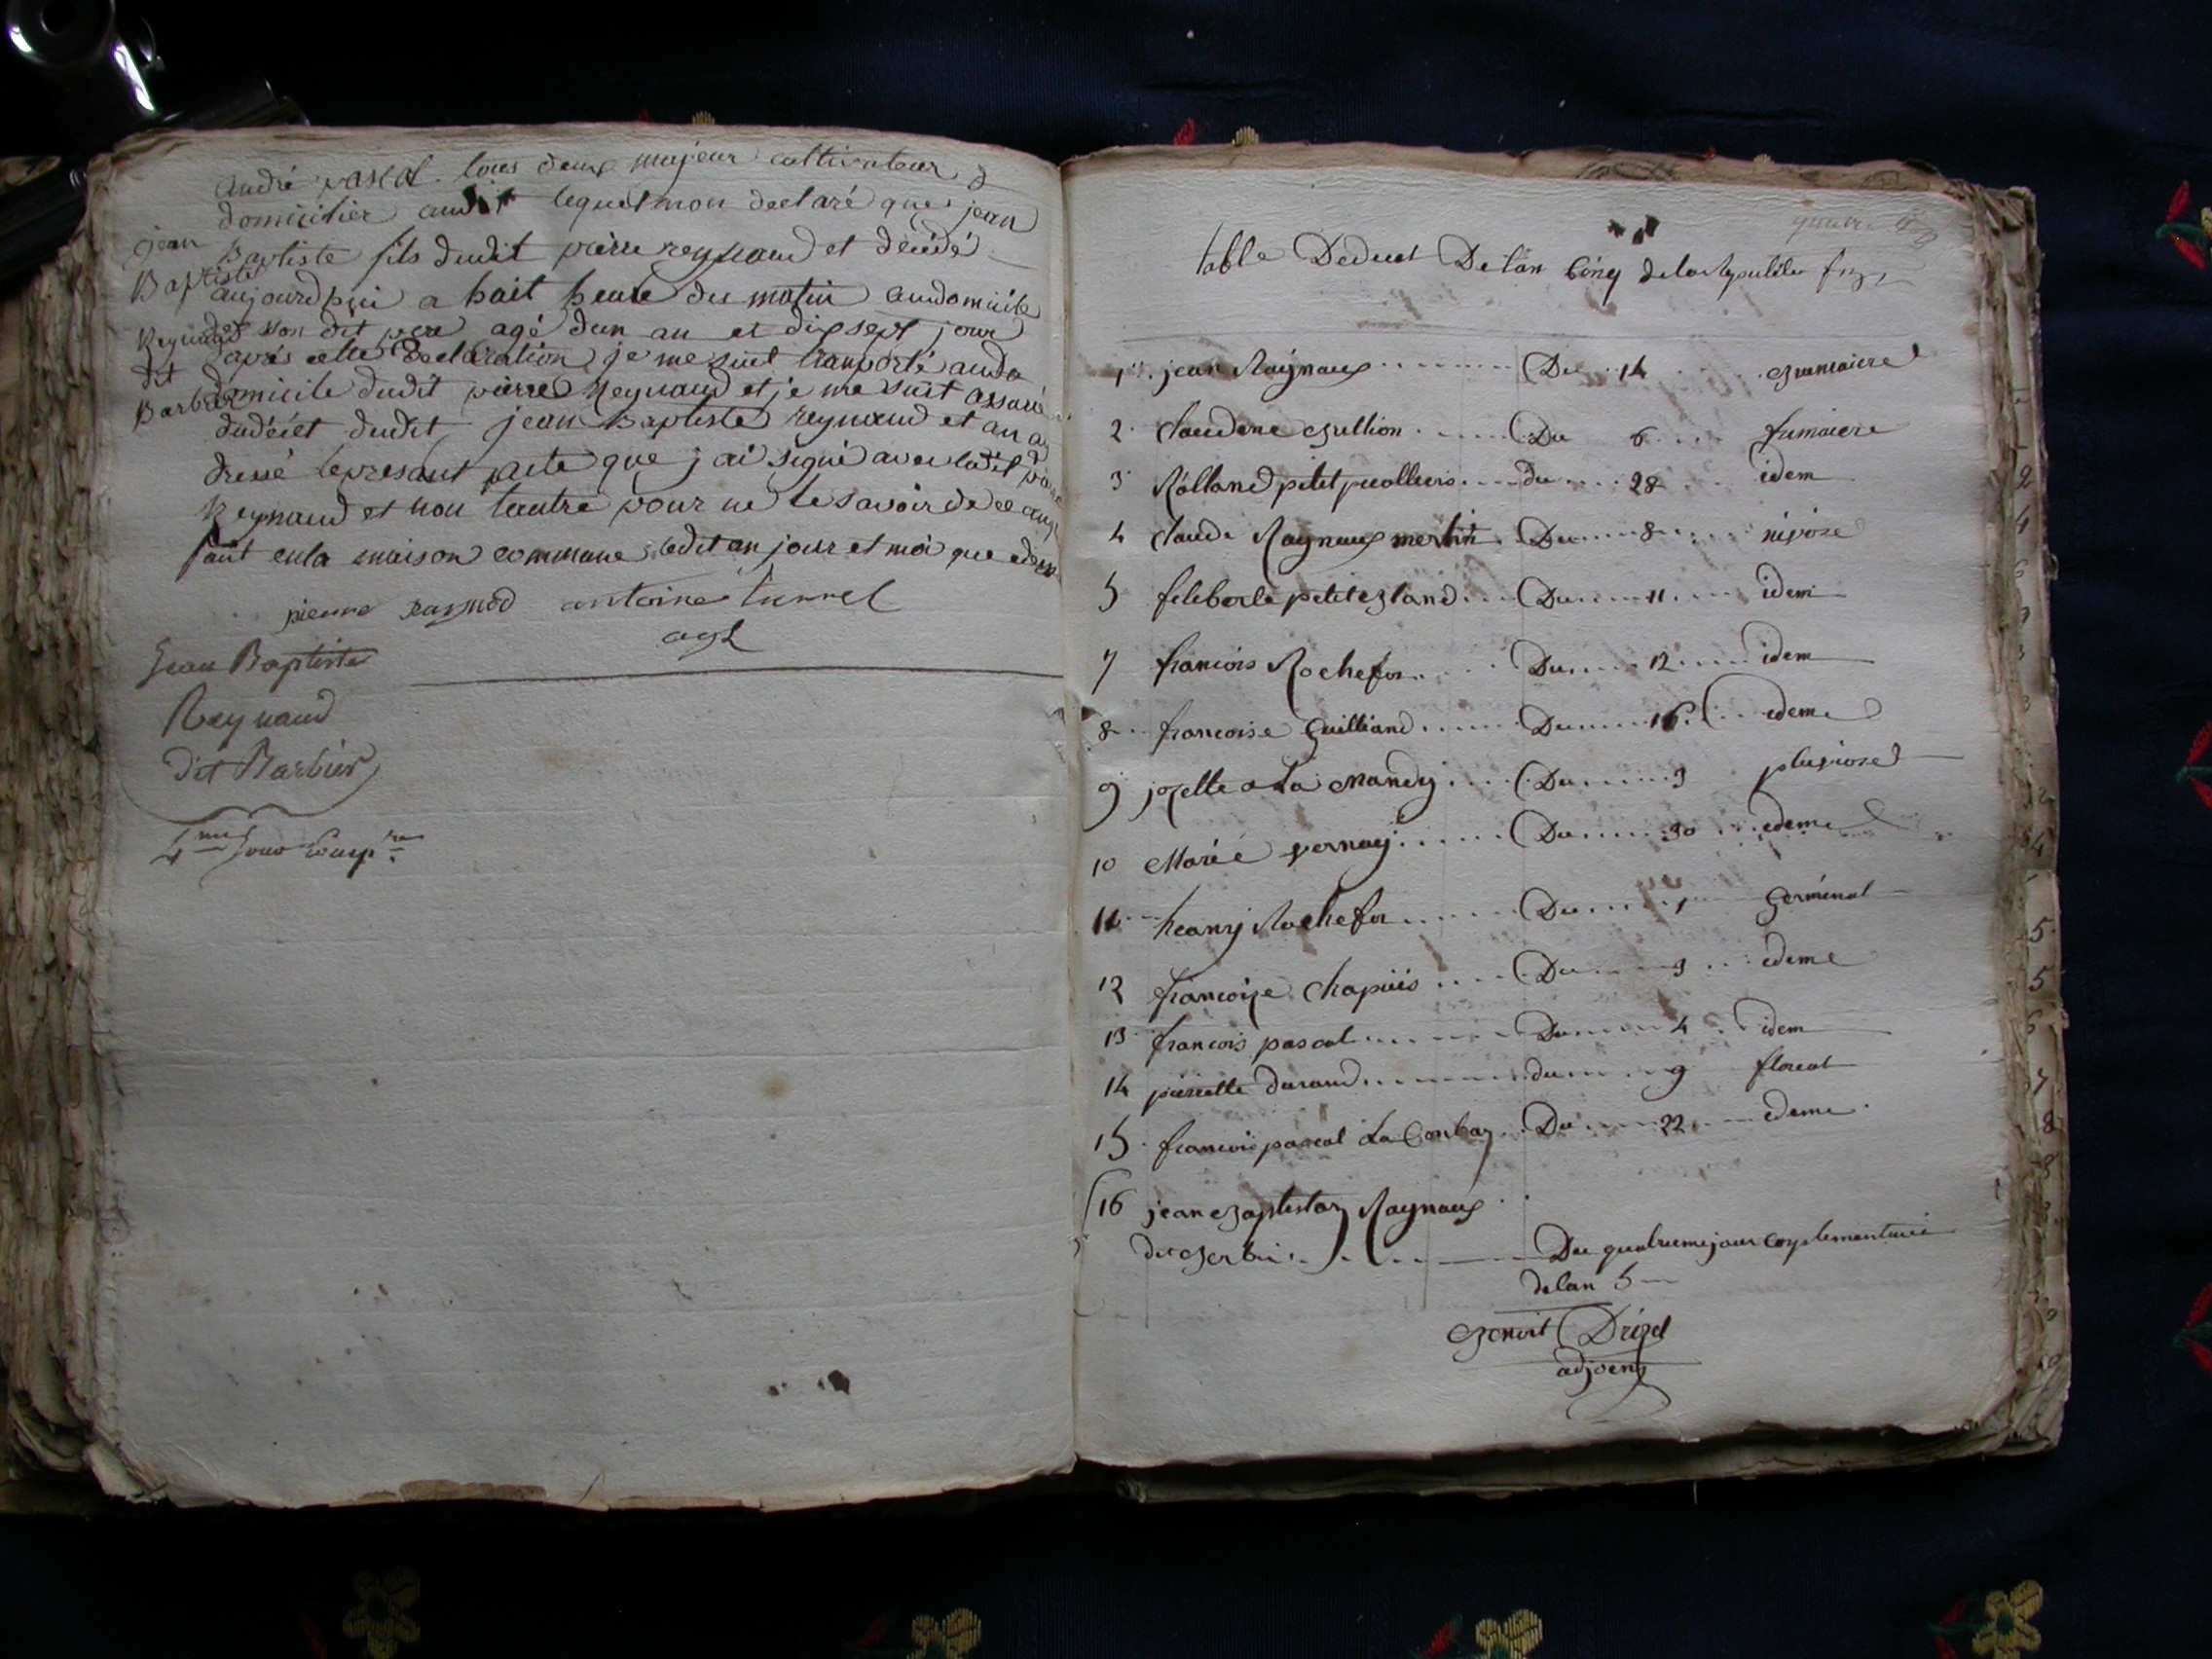 André pascal tous deux majeur cultivateur
domicilier audit lequel mon declaré que jean
Baptiste fils dudit pierre reynaud et décédé
aujourdhui a huit heure du matin audomicile
de son dit pere agé dun an et dix sept jour
après cette declaration je me suit transporté audo
domicile dudit pierre Reynaud et je me suit assuré
dudécét dudit jean Baptiste reynaud et an ai
dressé lepresant acte que jai signé avec ledit pierre
Reynaud et non lautre pour ne le savoir de ce
fait enla maison commune ledit an jour et moi que
jean
Baptiste
Reynaud
dit
Barbier
pierre raynod antoine turrel
agt
Jean Baptiste
Reynaud
dit Barbier
4me jour comp.re
table Deduct De lan Cinq dela Republiq
1 jean Raynaux Du 14
2 Claudene Du 6 frimaiere
3 Rolland petit du 28 idem
4 Claude Raynaux merlin Du 8 nivóse
5 petit Du 11 idem
7 francóis Rochefor Du 12 idem
8 francoise Guilliand Du 16 edeme
9 jozette La Mandy Du 3 pluviose
10 Marié vernay Du 30 edeme
11 heanry Rochefor Du 1 Germinal
12 francoize Chapuis Du 3 edeme
13 francois pascal Du 4 idem
14 pierrette durand du 9 floreal
15 francois pascal La Combaz Du 22 edeme
16 jean Baptistaz Raynaux
dit Berbie Du quatrieme jour complementaire
delan 5
Benoit Drizet
adjoent